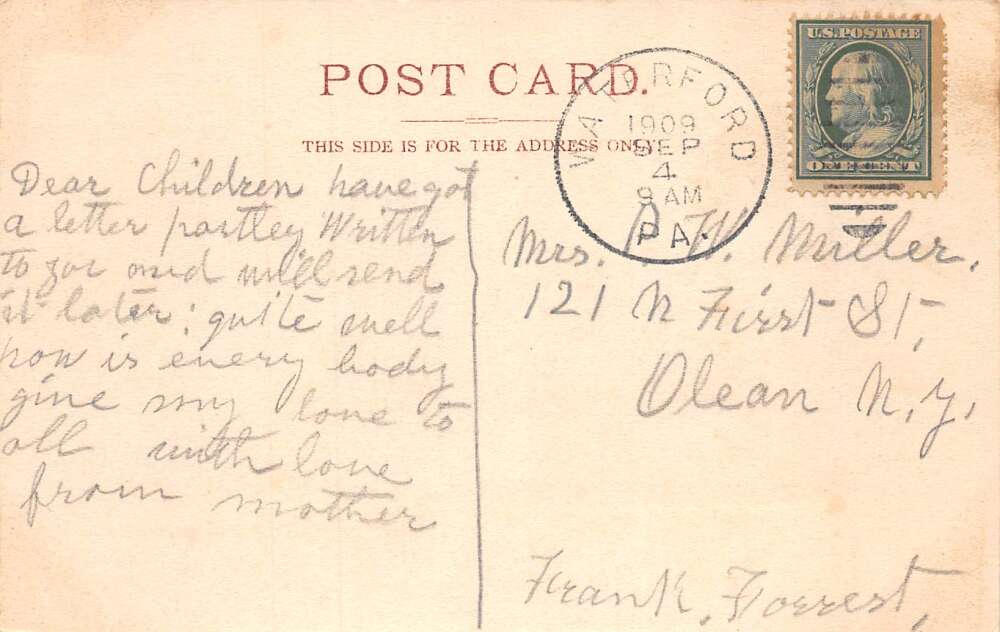 U.S. POSTAGE
ONE CENT
POST CARD.
THIS SIDE IS FOR THE ADDRESS ONLY.
WATERFORD
1909
SEP
4
9 AM
PA.
Dear Children have got
a letter partley Written
to you and will send
it later: quite well
how is every body
give my love to
all with love
from mother
Mrs. W. Miller,
121 N First St,
Olean N.Y.
Frank, Forrest,